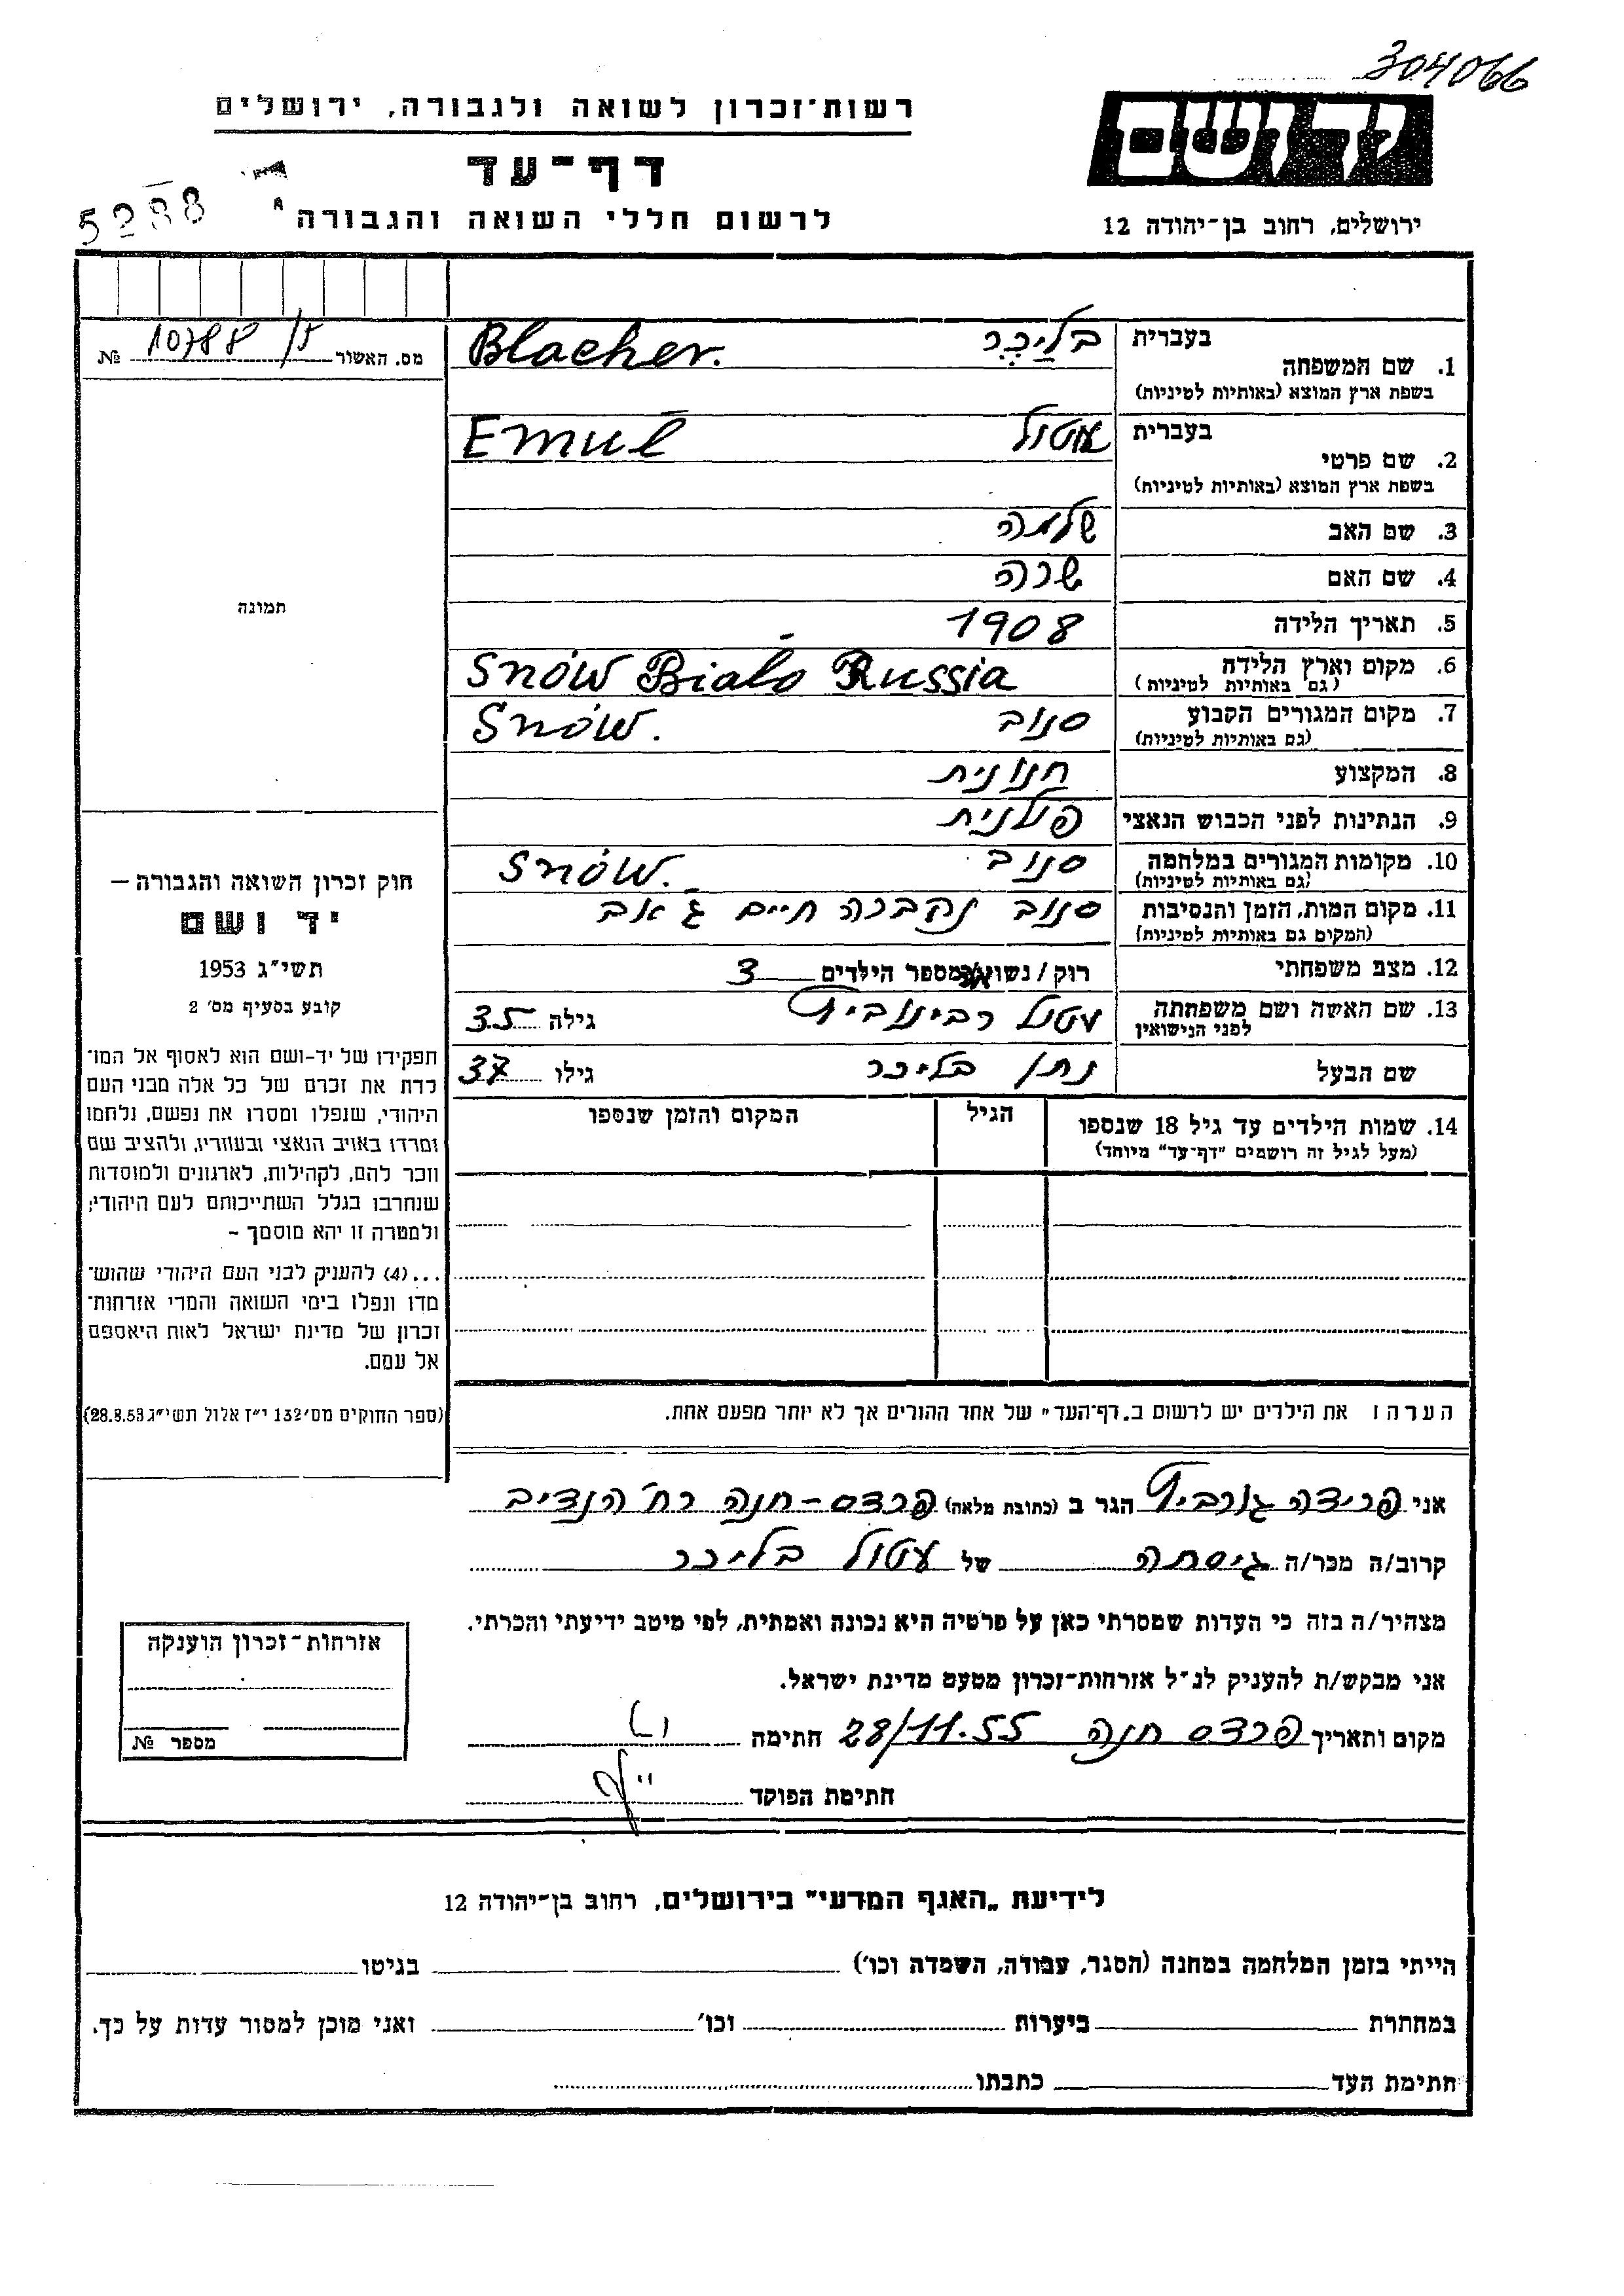 304066
רשות־זכרון לשואה ולגבורה, ירושלים
יד ושם
דף־עד
5288
לרשום חללי השואה והגבורה
ירושלים, רחוב בן־יהודה 12
מס. האשור 10788/5 №
בעברית בליכר
1. שם המשפחה Blacher.
בשפת ארץ המוצא (באותיות לטיניות)
בעברית
2. שם פרטי Emul
בשפת ארץ המוצא (באותיות לטיניות)
3. שם האב שלמה
4. שם האם שרה
5. תאריך הלידה 1908
6. מקום וארץ הלידה Snów Biało Russia
(גם באותיות לטיניות)
7. מקום המגורים הקבוע סנוב Snów.
(גם באותיות לטיניות)
8. המקצוע חנונית
9. הנתינות לפני הכבוש הנאצי פולנית
10. מקומות המגורים במלחמה סנוב Snów.
(גם באותיות לטיניות)
11. מקום המות, הזמן והנסיבות סנוב נקברה חיים
(המקום גם באותיות לטיניות)
12. מצב משפחתי רוק / נשוי מספר הילדים 3
13. שם האשה ושם משפחתה לפני הנישואין רבינוביץ גילה 35
שם הבעל נתן בליכר גילו 37
14. שמות הילדים עד גיל 18 שנספו
(מעל לגיל זה רושמים "דף־עד" מיוחד)
הגיל
המקום והזמן שנספו
הערה: את הילדים יש לרשום ב„דף־העד" של אחד ההורים אך לא יותר מפעם אחת.
תמונה
חוק זכרון השואה והגבורה —
יד ושם
תשי"ג 1953
קובע בסעיף מס' 2
תפקידו של יד-ושם הוא לאסוף אל המו־
לדת את זכרם של כל אלה מבני העם
היהודי, שנפלו ומסרו את נפשם, נלחמו
ומרדו באויב הנאצי ובעוזריו, ולהציב שם
וזכר להם, לקהילות, לארגונים ולמוסדות
שנחרבו בגלל השתייכותם לעם היהודי;
ולמטרה זו יהא מוסמך –
...(4) להעניק לבני העם היהודי שהוש־
מדו ונפלו בימי השואה והמרי אזרחות־
זכרון של מדינת ישראל לאות היאספם
אל עמם.
(ספר החוקים מס' 132 י"ז אלול תשי"ג 28.8.53)
אני פרידה גורביץ הגר ב (כתובת מלאה) פרדס-חנה רח' הנדיב
קרוב/ה מכר/ה גיסתה של בליכר
מצהיר/ה בזה כי העדות שמסרתי כאן על פרטיה היא נכונה ואמתית, לפי מיטב ידיעתי והכרתי.
אני מבקש/ת להעניק לנ"ל אזרחות־זכרון מטעם מדינת ישראל.
מקום ותאריך פרדס חנה 28/11.55 חתימה
חתימת הפוקד
אזרחות־זכרון הוענקה
מספר №
לידיעת „האגף המדעי" בירושלים, רחוב בן־יהודה 12
הייתי בזמן המלחמה במחנה (הסגר, עבודה, השמדה וכו') בגיטו
במחתרת ביערות וכו' ואני מוכן למסור עדות על כך.
חתימת העד כתבתו